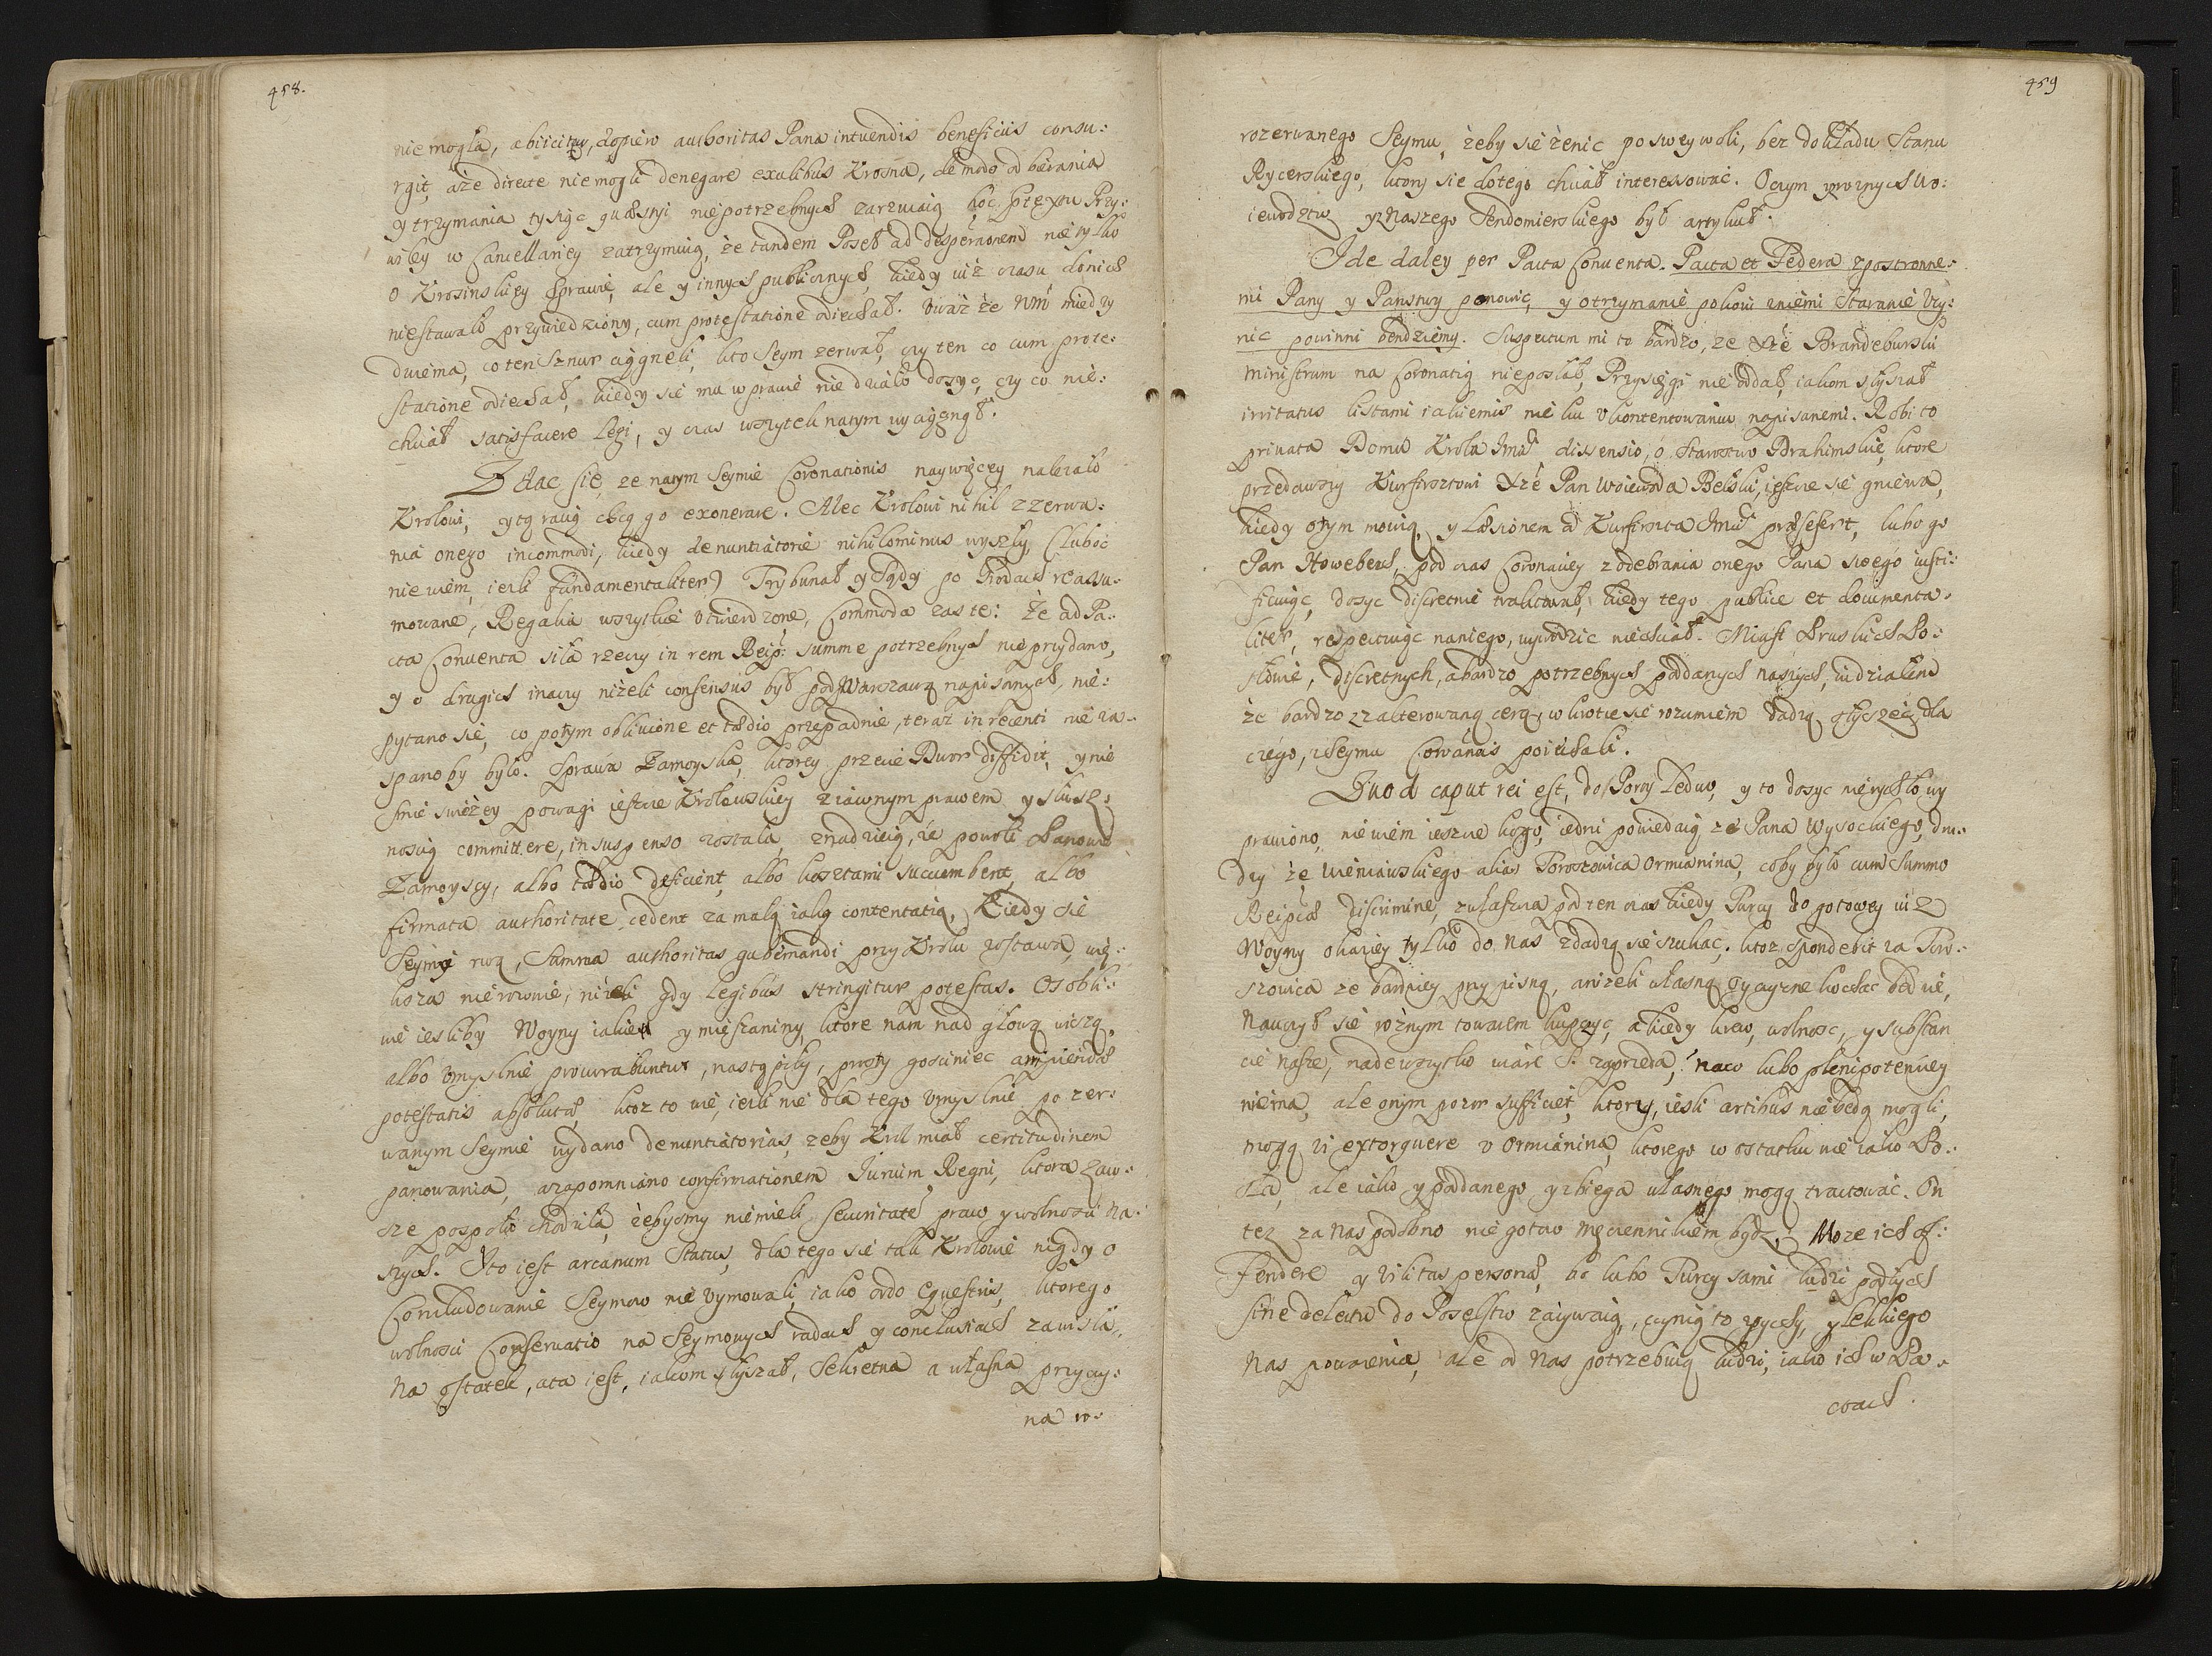 458.
nie mogła, abiicitur, dopiero authoritas Pana intuendis beneficiis consu:
rgit, aże directe nie mogli denegare exulibus Krosna, de modo odbierania
y trzymania tysiąc quæstyi niepotrzebnych zarzucaią hoc ptextu Przy:
wiley w Cancellariey zatrzymuią, że tandem Poseł ad desperationem nie tylko
o Krosinskiey sprawie, ale y innych publicznych, kiedy iuż czasu do nich
niestawało przywiedziony, cum protestatione odiechał. Uważ że Wm miedzy
dwiema, co ten sznur ciągneli, kto Seym zerwał, czy ten co cum prote:
statione odiechał, kiedy sie mu w prawie nie działo dosyc, czy co nie:
chciał satisfacere Legi, y czas wszytek na tym wyciągnął.
Zdac sie, ze na tym Seymie Coronationis naywięcey nalezało
Krolowi, y tą racią chcą go exonerare. Alec Krolowi nihil z zerwa:
nia onego incommodi, kiedy denuntiatorie nihilominus wyszły, (luboc
nie wiem, iesli fundamentaliter) Trybunał y Sądy po Grodach reassu:
mowane, Regalia wszytkie utwierdzone, Commoda zas te: Że ad Pa:
cta Conventa siła rzeczy in rem Reip: summe potrzebnych nie przydano,
y o drugich inaczy niżeli consensus był pod Warszawą napisanych, nie:
pytano sie, co potym oblivione et tædio przepadnie, teraz in recenti nie za:
spano by było. Sprawa Zamoyska, ktorey przecie Dwor diffidit, y nie
smie swieżey powagi ieszcze Krolewskiey z iawnym prawem y słusz:
noscią committere, in suspenso zostala, z nadzieią, że powoli Panowie
Zamoyscy, albo tædio deficient, albo kosztami succumbent, albo
firmata authoritate cedent za małą iaką contentatią, Kiedy sie
Seymy rwą, Summa authoritas gubernandi przy Krolu zostawa, wię:
ksza nierownie, niżeli gdy legibus stringitur potestas. Osobli:
wie iesliby Woyny iakie y mieszaniny, ktore nam nad głową wiszą,
albo umyslnie procurabuntur, nastąpiły, prosty gosciniec arripiendæ
potestatis absolutæ, ktoz to wie, iesli nie dla tego umyslnie po zer:
wanym Seymie wydano denuntiatorias, zeby Krol miał certitudinem
panowania, a zapomniano confirmationem Jurium Regni, ktora zaw:
sze pospołu chodziła, żebysmy niemieli securitate praw y wolnosci na:
szych. Y to iest arcanum Status, dla tego sie tak Krolowie nigdy o
Concludowanie Seymow nie uymowali, iako ordo Equestris, ktorego
wolnosci conservatio na Seymowych radach y conclusiach zawisła.
Na ostatek, a ta iest, iakom słyszał, Sekretna a własna przyczy:
na ro:
459
rozerwanego Seymu, żeby sie żenic po swey woli, bez dokładu Stanu
Rycerskiego, ktory sie do tego chciał interessować. O czym y z roznych Wo:
iewodztw y z Naszego Sendomierskiego był artykuł.
Ide daley per Pacta Conventa. Pacta et Federa z postronne:
mi Pany y Panstwy ponowic, y otrzymanie pokoiu zniemi Staranie Uczy:
nic powinni bendziemy. Suspectum mi to bardzo, ze Xże Brandeburski
Ministrum na Coronatią nieposłał, Przysięgi nie oddał, iakom słyszał
irritatus listami iakiemis nie ku ukontentowaniu napisanemi. Robi to
privata Domu Krola Jmci dissensio, o Starostwo Drahimskie, ktore
przedawszy Kurfirsztowi Xże Pan Woiewoda Belski, ieszcze sie gniewa,
kiedy o tym mowią, y Læsionem od Kurfirszta Jmci præsefert, lubo go
Pan Howebeck, pod czas Coronaciey z odebrania onego Pana swego iusti:
ficuiąc, dosyc discretnie traktował, kiedy tego publice et documenta:
liter, respectuiąc na niego, wywodzic niechciał. Miast Pruskich Po:
słowie, discretnych, a bardzo potrzebnych poddanych naszych, widziałem
że bardzo z zalterowaną cerą, w krotce sie rozumiem dadzą słyszeć dla
czego, z Seymu Coronatis poiechali.
Quod caput rei est, do Porty ledwo, y to dosyc nierychło wy
prawiono, niewiem ieszcze kogo, iedni powiedaią ze Pana Wysockiego, dru:
dzy że Wieniawskiego alias Toroszowica Ormianina, coby było cum Summo
Reipcæ discrimine, zwłaszcza pod ten czas kiedy Turcy do gotowey iuz
Woyny okaziey tylko do nas zdadzą sie szukac. ktoz spondebit za Toro:
szowica ze bardziey przypisną, anizeli własną Oyczyzne kochac bedzie,
Nauczył sie rożnym towarem kupczyc, a kiedy krew, wolnosc, y substan
cie nasze, nadewszytko wiare S. zaprzeda, naco lubo plenipotenciey
niema, ale onym pozor sufficiet, ktorzy, iesli artibus niebedą mogli,
mogą vi extorquere u Ormianina, ktorego w ostatku nie iako Po:
sła, ale iako y poddanego y zbiega własnego mogą tractować. On
tez za nas podobno nie gotow Męczennikiem bydz, Moze ich of:
fendere y vilitas personæ, bo lubo Turcy sami ludzi podłych
sine delectu do Poselstw zażywaią, czynią to z pychy, y lekkiego
Nas powazenia, ale od Nas potrzebuią ludzi, iako ich w Pa:
ctach.